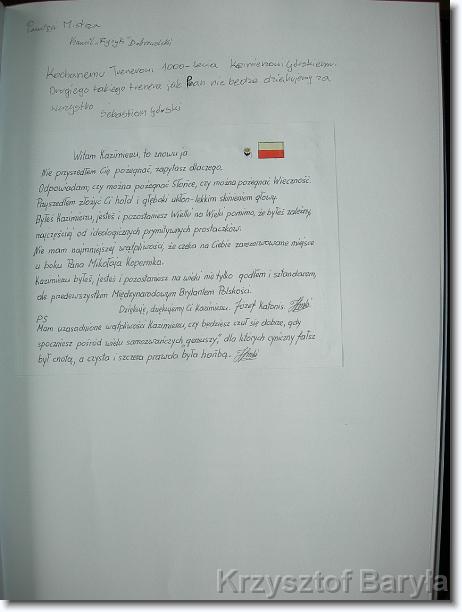 Kamil "Fyzyk" Dobrowolski
Kochanemu Trenerowi 1000-lecia Kazimierzowi Górskiemu.
Drugiego takiego trenera jak Pan nie będzie dziękujemy za
wszystko
Sebastian Górski
Witam Kazimierzu, to znowu ja
Nie przyszedłem Cię pożegnać, zapytasz dlaczego.
Odpowiadam, czy można pożegnać Słońce, czy można pożegnać Wieczność.
Przyszedłem złożyć Ci hołd i głęboki ukłon-lekkim skinieniem głowy.
Byłeś Kazimierzu, jesteś i pozostaniesz Wielki na Wieki pomimo, że byłeś zależny,
najczęściej od ideologicznych prymitywnych prostaczków.
Nie mam najmniejszej wątpliwości, że czeka na Ciebie zarezerwowane miejsce
u boku Pana Mikołaja Kopernika.
Kazimierzu byłeś, jesteś i pozostaniesz na wieki nie tylko godłem i sztandarem,
ale przedewszystkim Międzynarodowym Brylantem Polskości.
Dziękuję, dziękujemy Ci Kazimierzu. Józef Katonis.
PS
Mam uzasadnione wątpliwości Kazimierzu, czy będziesz czuł się dobrze, gdy
spoczniesz pośród wielu samozwańczych "geniuszy", dla których cyniczny fałsz
był cnotą, a czysta i szczera prawda była hańbą.
Krzysztof Baryla